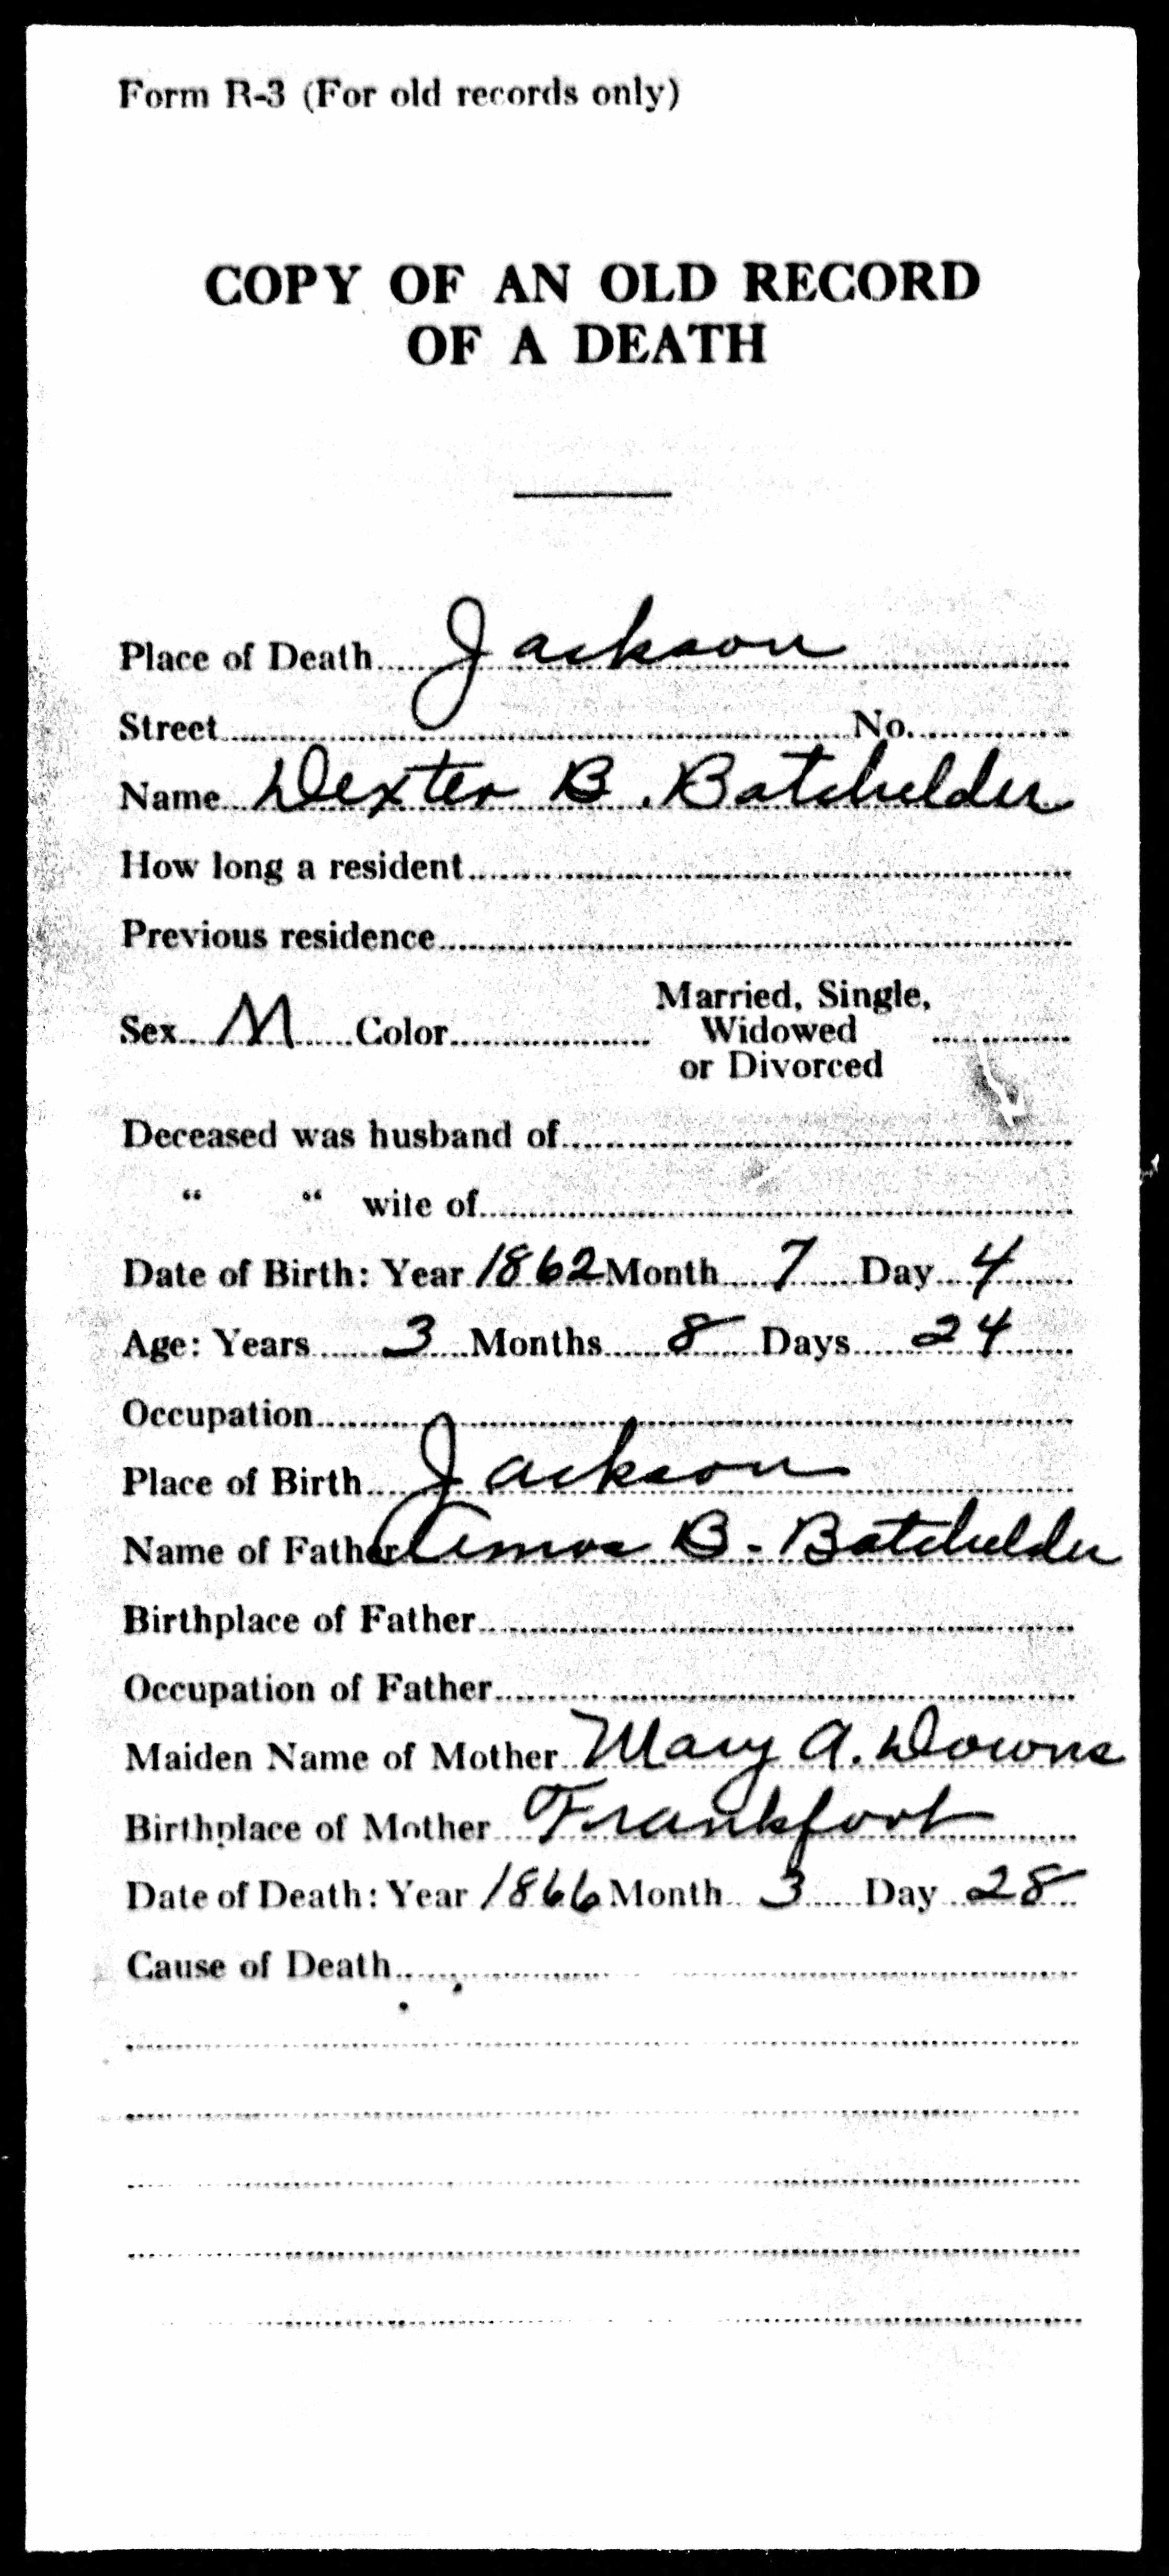 Form R-3 (For old records only)
COPY OF AN OLD RECORD
OF A DEATH
Place of Death Jackson
Street No.
Name Dexter B. Batchelder
How long a resident
Previous residence
Sex M Color Married, Single, Widowed or Divorced
Deceased was husband of
“ “ wife of
Date of Birth: Year 1862 Month 7 Day 4
Age: Years 3 Months 8 Days 24
Occupation
Place of Birth Jackson
Name of Father Amos B. Batchelder
Birthplace of Father
Occupation of Father
Maiden Name of Mother Mary A. Downs
Birthplace of Mother Frankfort
Date of Death: Year 1866 Month 3 Day 28
Cause of Death